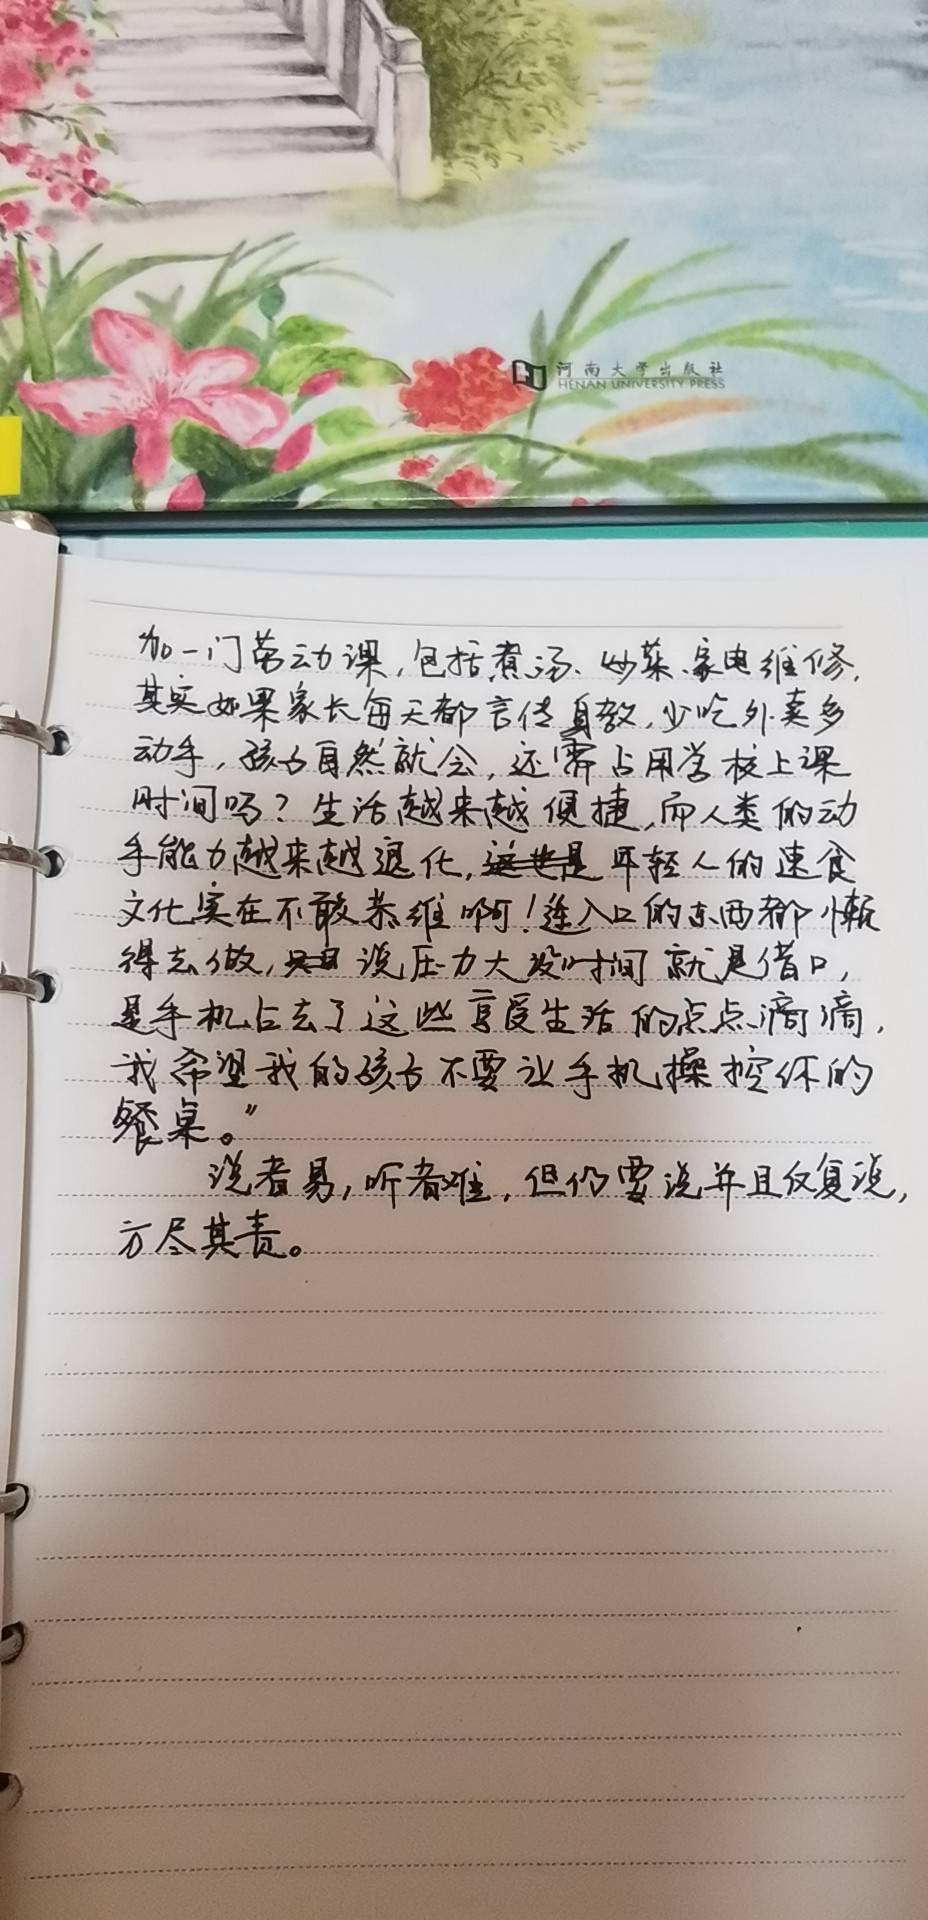 河南大学出版社
HENAN UNIVERSITY PRESS
加一门劳动课，包括煮汤、炒菜、家电维修，
其实如果家长每天都言传身教，少吃外卖多
动手，孩子自然就会，还需占用学校上课
时间吗？生活越来越便捷，而人类的动
手能力越来越退化，这也是年轻人的速食
文化实在不敢恭维啊！连入口的东西都懒
得去做，说压力大没时间就是借口，
是手机占去了这些享受生活的点点滴滴，
我希望我的孩子不要让手机操控你的
餐桌。”
说者易，听者难，但仍要说并且反复说，
方尽其责。